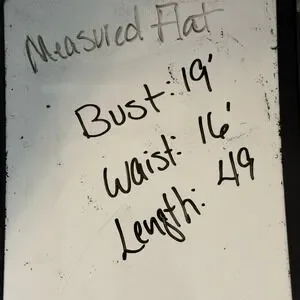 Measured Flat
Bust: 19'
Waist: 16'
Length: 49